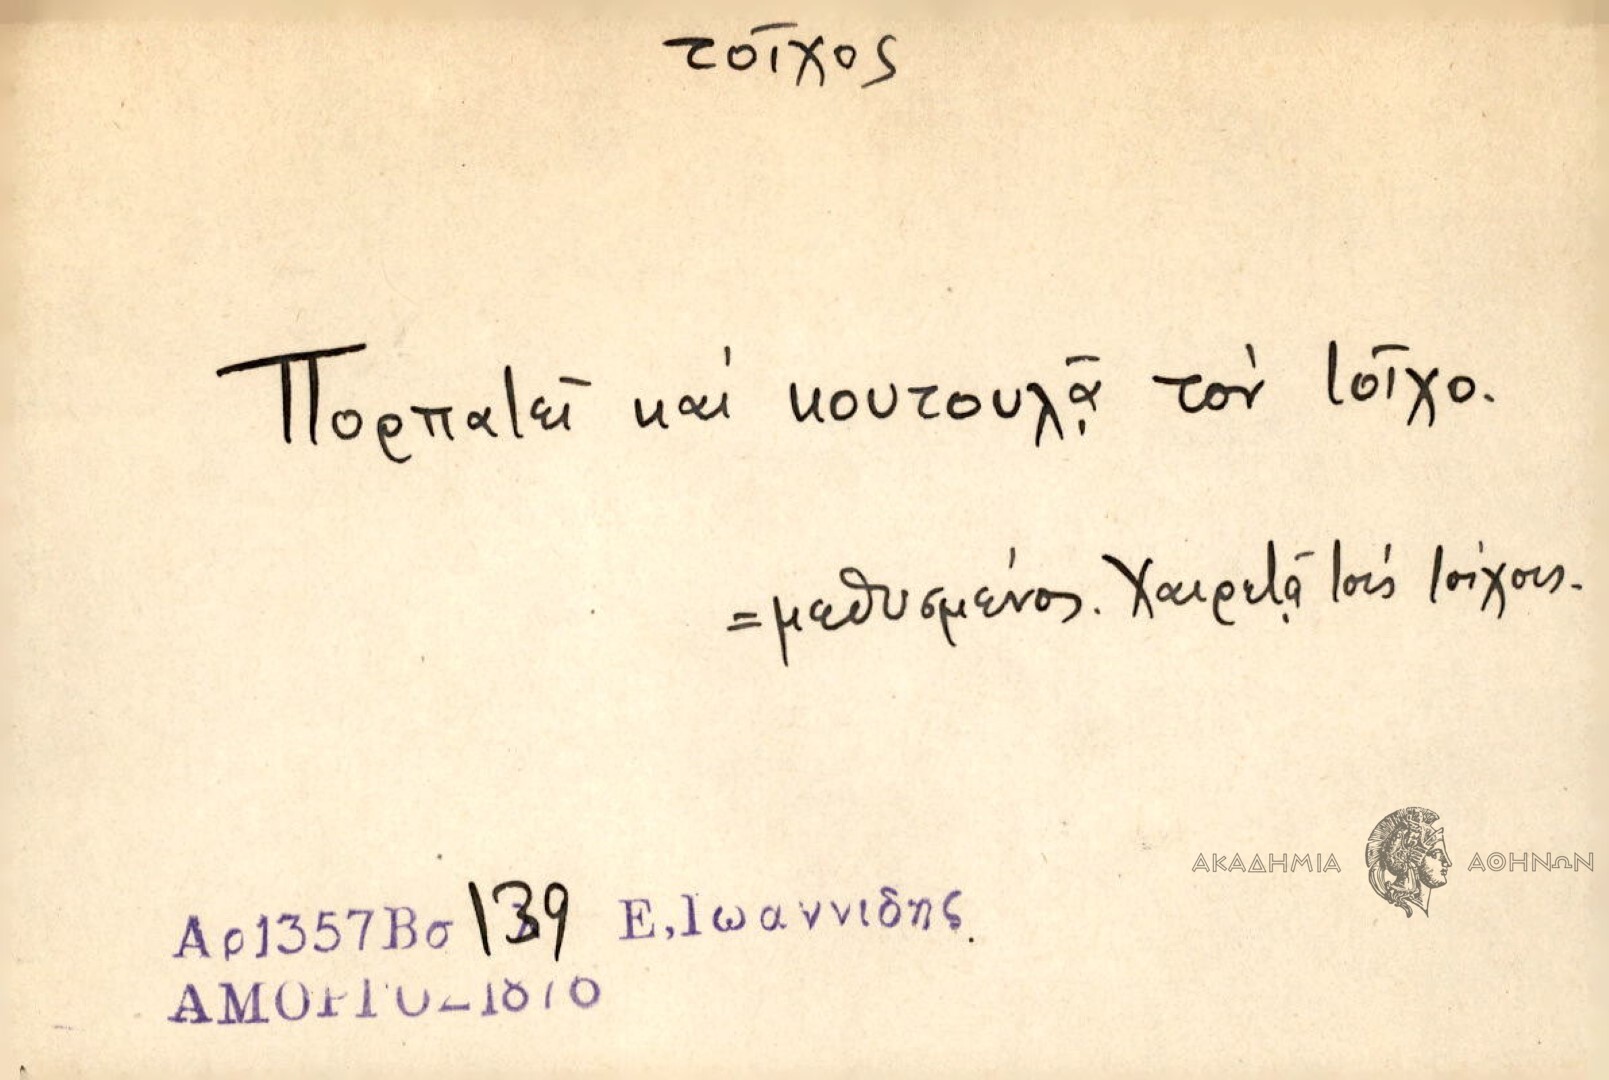 τοῖχος
Πορπατεῖ καί κουτουλᾷ τόν τοῖχο.
=μεθυσμένος. Χαιρετᾷ τούς τοίχους.
ΑΚΑΔΗΜΙΑ ΑΘΗΝΩΝ
Αρ1357Βσ 139 Ε,Ιωαννιδης.
ΑΜΟΡΓΟΣ 1876